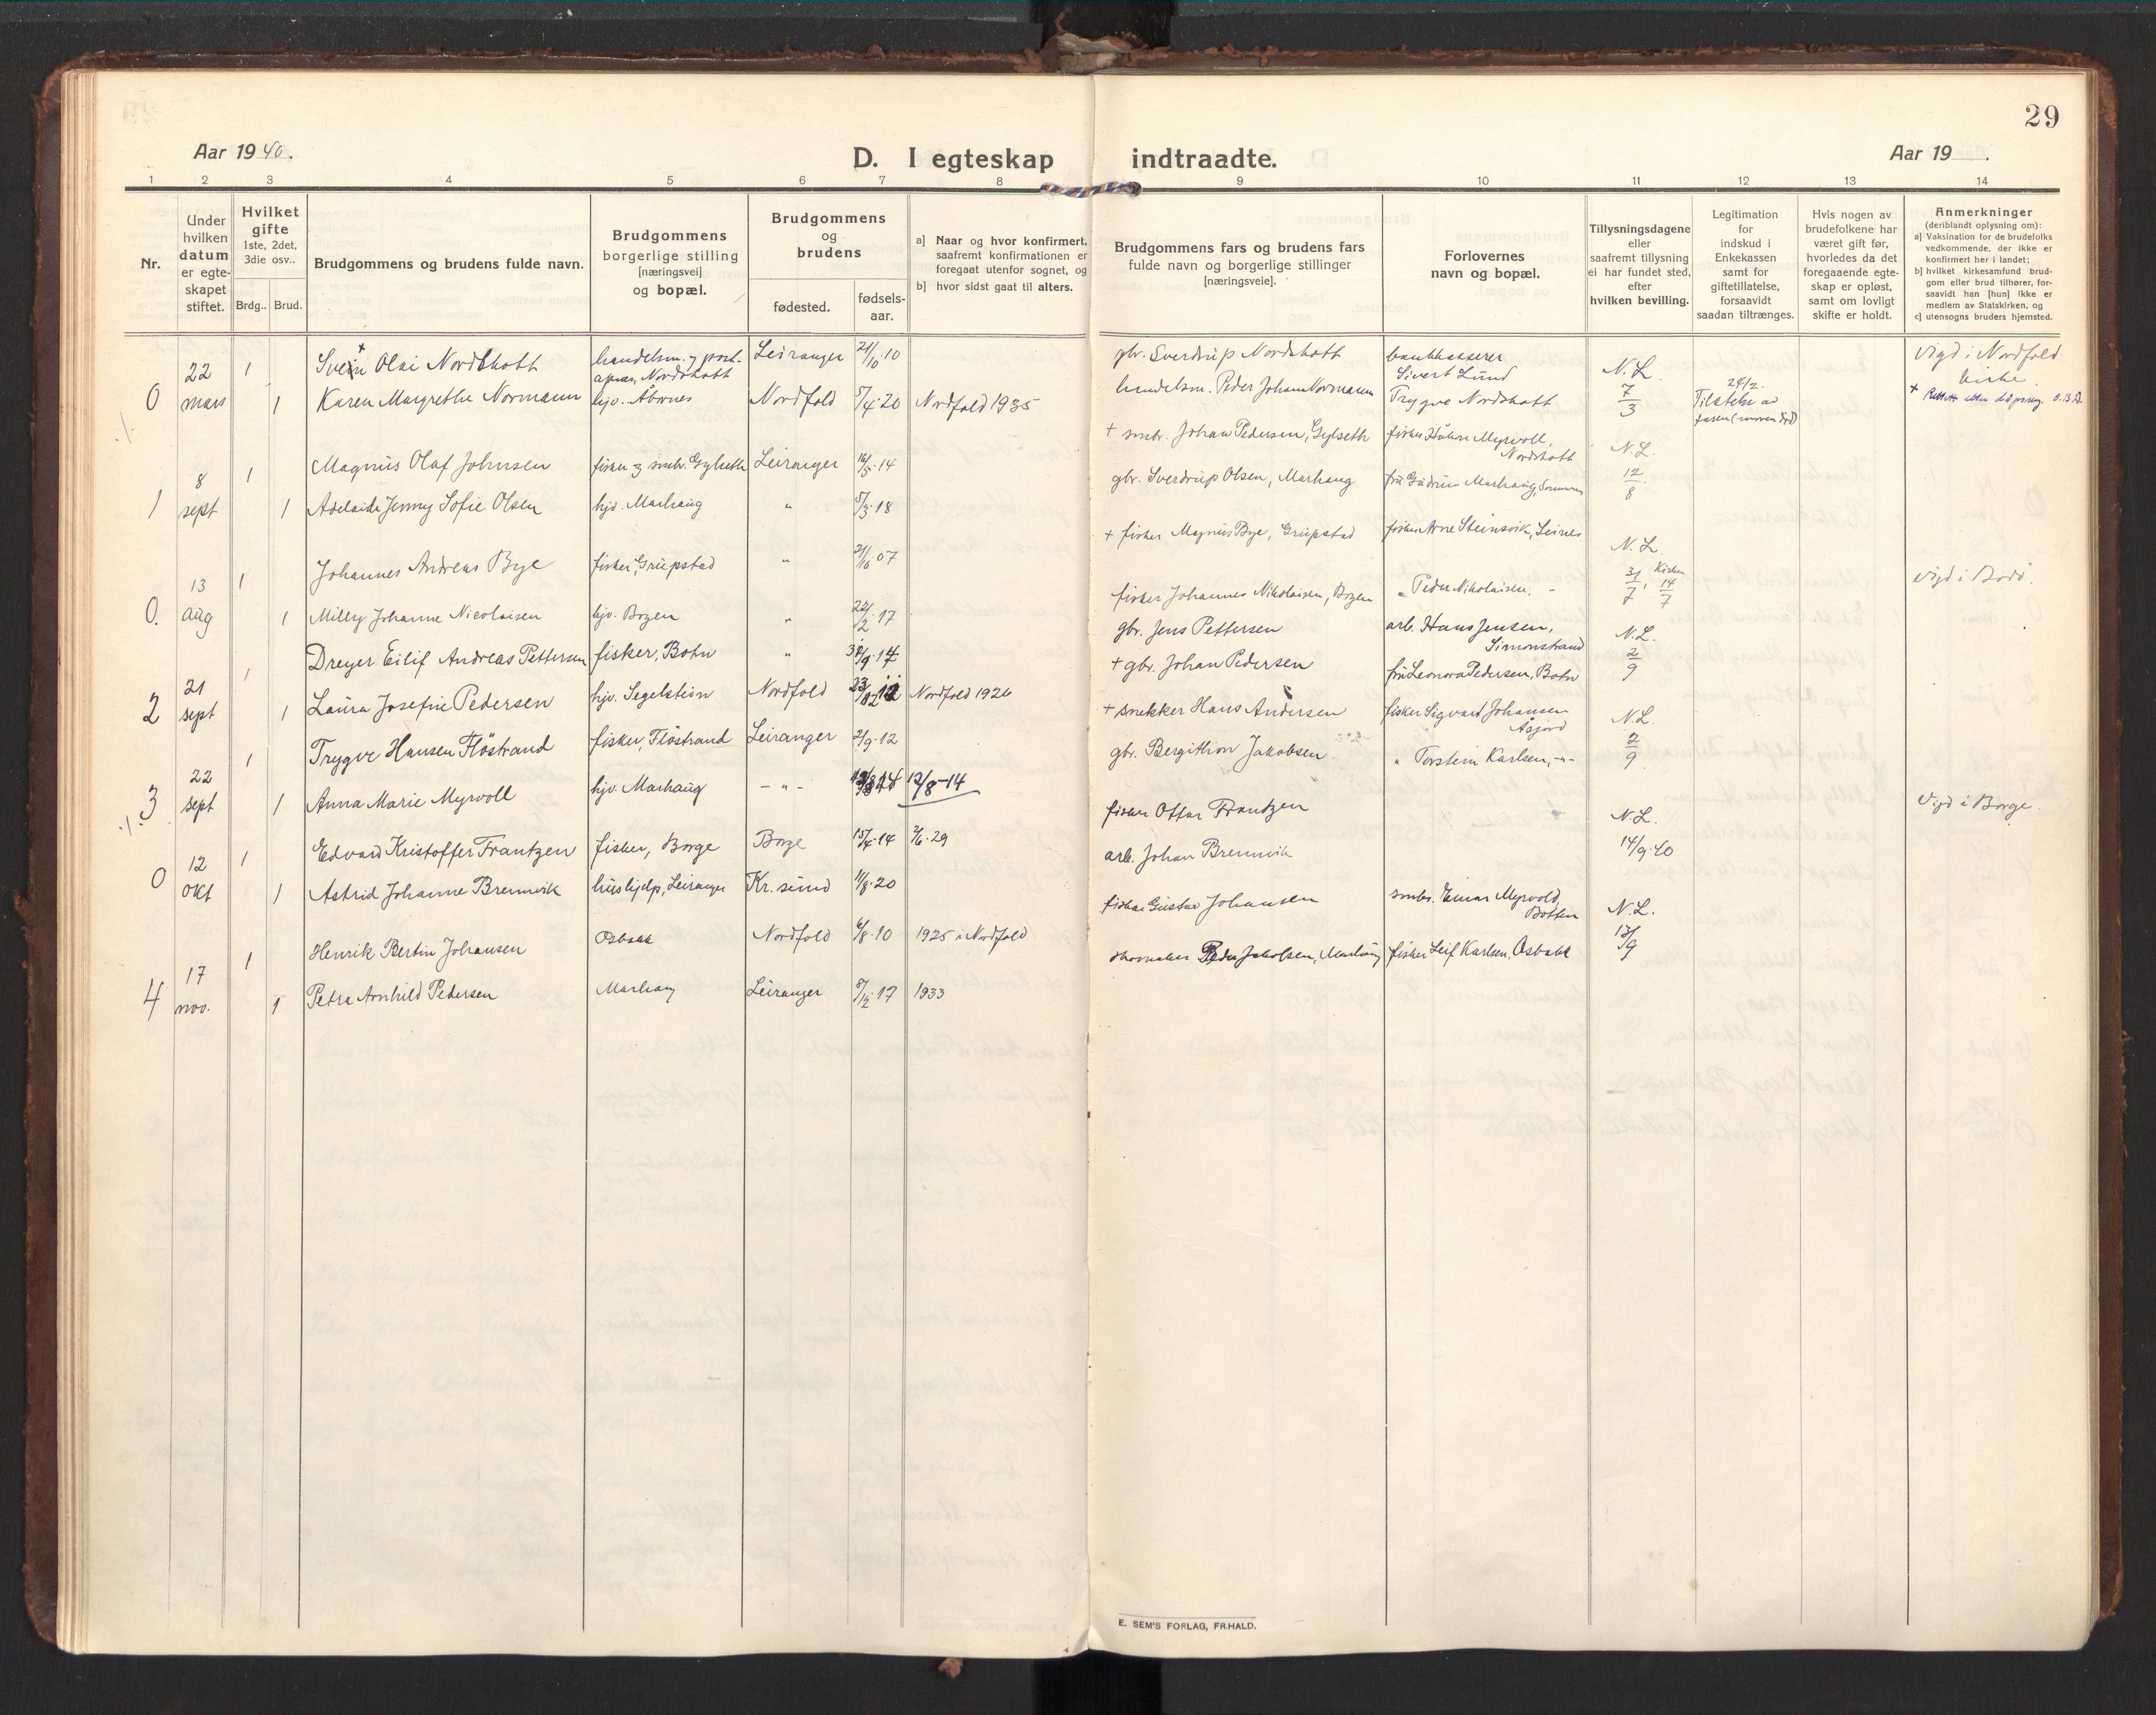 29
Aar 1940.
D. I egteskap indtraadte.
Aar 19 .
1 2 3 4 5 6 7 8 9 10 11 12 13 14
Nr.
Under hvilken datum er egte-skapet stiftet.
Hvilket gifte
1ste, 2det, 3die osv..
Brdg.. Brud.
Brudgommens og brudens fulde navn.
Brudgommens borgerlige stilling [næringsvei] og bopæl.
Brudgommens og brudens
fødested.
fødsels-aar.
a] Naar og hvor konfirmert, saafremt konfirmationen er foregaat utenfor sognet, og
b] hvor sidst gaat til alters.
Brudgommens fars og brudens fars
fulde navn og borgerlige stillinger
[næringsveie].
Forlovernes
navn og bopæl.
Tillysningsdagene eller saafremt tillysning ei har fundet sted, efter hvilken bevilling.
Legitimation for indskud i Enkekassen samt for giftetillatelse, forsaavidt saadan tiltrænges.
Hvis nogen av brudefolkene har været gift før, hvorledes da det foregaaende egte-skap er opløst, samt om lovligt skifte er holdt.
Anmerkninger
(deriblandt oplysning om):
a] Vaksination for de brudefolks vedkommende, der ikke er konfirmert her i landet;
b] hvilket kirkesamfund brud-gom eller brud tilhører, for-saavidt han [hun] ikke er medlem av Statskirken, og
c] utensogns bruders hjemsted.
0 22 mars 1 Svein Olai Nordskott handelsm. og post-
Nordskott Leiranger 21/10.10 gbr. Sverdrup Nordskott bankkasserer
Sivert Lund N.L. 7/3 vigd i Nordfold
kirke
1 Karen Margrethe Normann hjv. Åbornes Nordfold 5/4.20 Nordfold 1935 handelsm. Peder Johan Normann Trygve Nordskott 24/2.
Tilstelse av
faren (moren død)
1 8 sept 1 Magnus Olaf Johnsen fisker og smbr. Gylseth Leiranger 16/5.14 + smbr. Johan Pedersen, Gylseth fisker Håkon Myrvoll,
Nordskott N.L. 12/8
1 Adelaide Jenny Sofie Olsen hjv. Marhaug " 5/3.18 gbr. Sverdrup Olsen, Marhaug fru Gudrun Marhaug,
0. 13 aug 1 Johannes Andreas Bye fisker, Grupstad " 21/6.07 + fisker Magnus Bye, Grupstad fisker Arne Steinsvik, Leines N.L. 31/7, 14/7 vigd i Bodö.
1 Milly Johanne Nicolaisen hjv. Bogen " 22/2.17 fisker Johannes Nikolaisen, Bogen " Peder Nikolaisen, -
2 21 sept 1 Dreyer Eilif Andreas Pettersen fisker, Botn " gbr. Jens Pettersen arb. Hans Jensen,
Simonstrand N.L. 2/9
1 Laura Josefine Pedersen hjv. Segelstein Nordfold Nordfold 1926 + gbr. Johan Pedersen fru Leonora Pedersen, Botn
3 22 sept 1 Trygve Hansen Flöstrand fisker, Flöstrand Leiranger 2/9.12 + snekker Hans Andersen fisker Sigvard Johansen
Åsjord N.L. 2/9
1 Anna Marie Myrvoll hjv. Marhaug - " - 12/8-14 gbr. Bergithon Jakobsen " Torstein Karlsen, -"-
0 12 okt 1 Edvard Kristoffer Frantzen fisker, Borge Borge 15/4.14 2/6.29 fisker Ottar Frantzen N.L. 14/9.40 Vigd i Borge.
1 Astrid Johanne Bremvik hushjelp, Leiranger Kr.sund 11/8.20 arb. Johan Bremvik
4 17 nov. 1 Henrik Bertin Johansen Osbakk Nordfold 6/8.10 1925 i Nordfold fisker Gustav Johansen smbr. Einar Myrvold,
Botten N.L. 13/9
1 Petra Arnhild Pedersen Marhaug Leiranger 5/12.17 1933 skomaker Peder Jakobsen, Marhaug fisker Leif Karlsen, Osbakk
E. SEM'S FORLAG, FR.HALD.